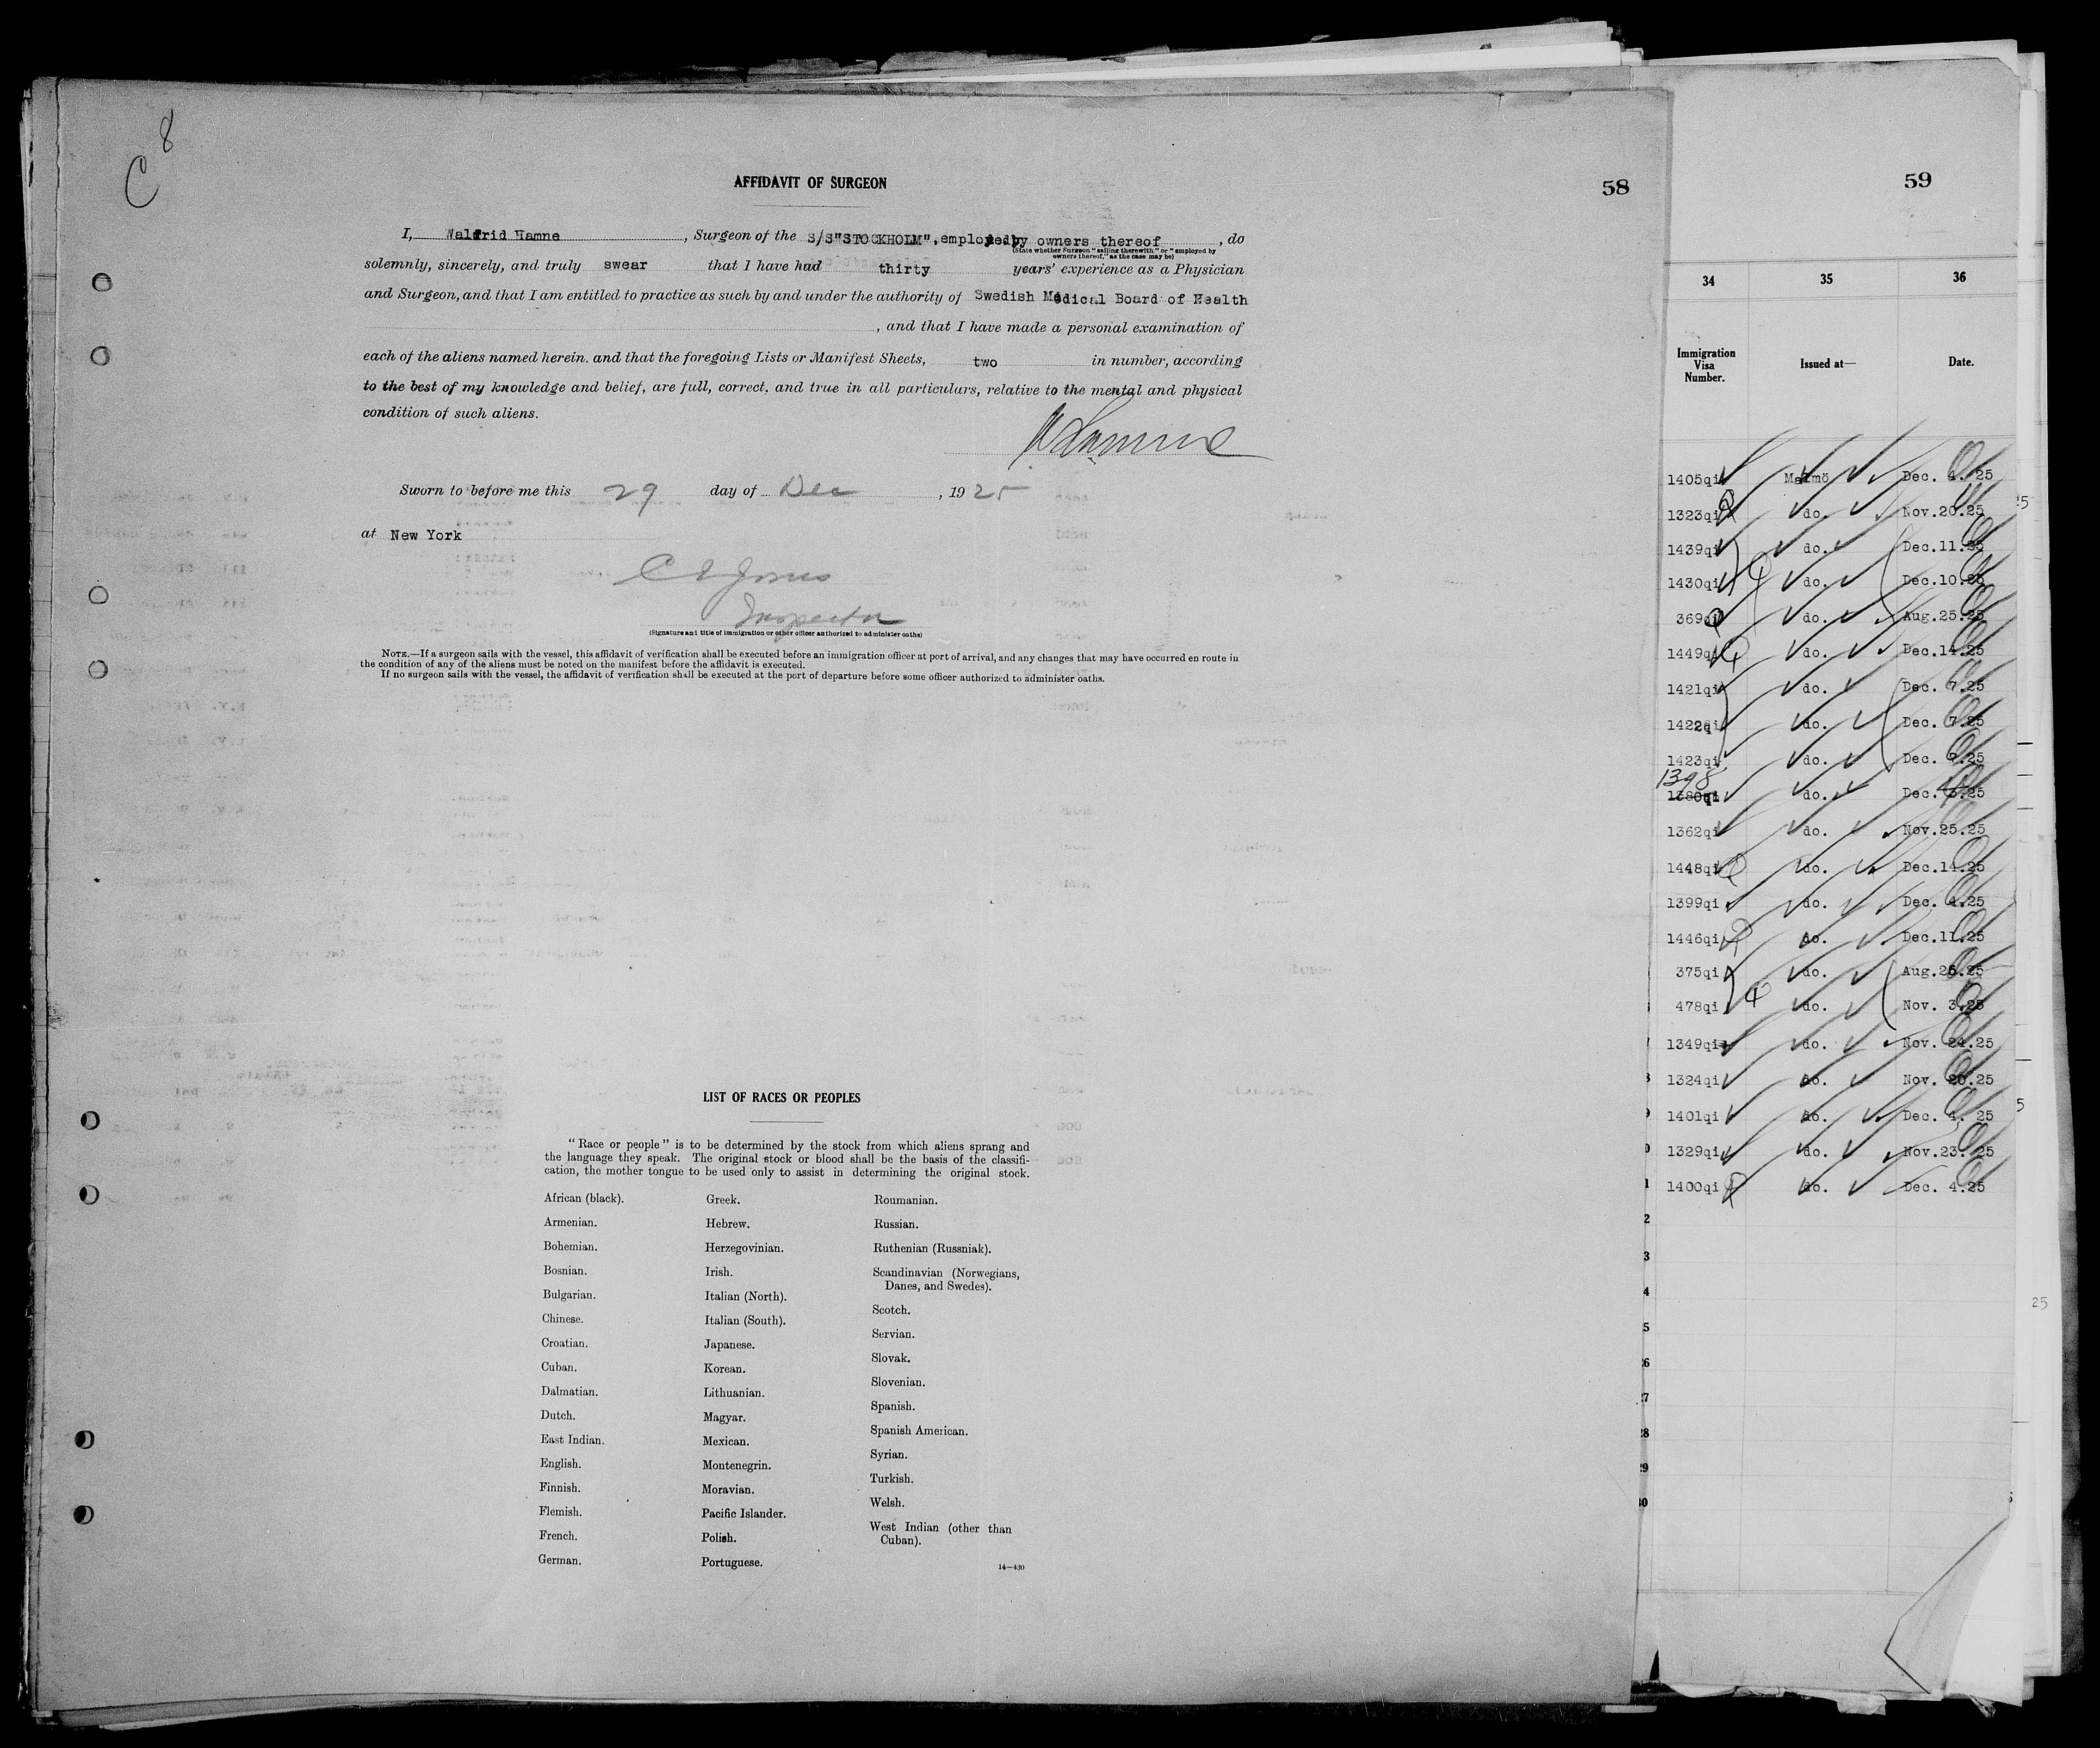 C 8
AFFIDAVIT OF SURGEON
58
I, Walfrid Hamne, Surgeon of the S/S"STOCKHOLM", employed by owners thereof, do
(State whether Surgeon "sailing therewith" or "employed by
owners thereof," as the case may be)
solemnly, sincerely, and truly swear that I have had thirty years' experience as a Physician
and Surgeon, and that I am entitled to practice as such by and under the authority of Swedish Medical Board of Health
, and that I have made a personal examination of
each of the aliens named herein. and that the foregoing Lists or Manifest Sheets, two in number, according
to the best of my knowledge and belief, are full, correct, and true in all particulars, relative to the mental and physical
condition of such aliens.
WHamne
Sworn to before me this 29 day of Dec, 1925
at New York
C E Jones
Inspector
(Signature and title of immigration or other officer authorized to administer oaths)
NOTE.—If a surgeon sails with the vessel, this affidavit of verification shall be executed before an immigration officer at port of arrival, and any changes that may have occurred en route in
the condition of any of the aliens must be noted on the manifest before the affidavit is executed.
If no surgeon sails with the vessel, the affidavit of verification shall be executed at the port of departure before some officer authorized to administer oaths.
LIST OF RACES OR PEOPLES
"Race or people" is to be determined by the stock from which aliens sprang and
the language they speak. The original stock or blood shall be the basis of the classifi-
cation, the mother tongue to be used only to assist in determining the original stock.
African (black).
Armenian.
Bohemian.
Bosnian.
Bulgarian.
Chinese.
Croatian.
Cuban.
Dalmatian.
Dutch.
East Indian.
English.
Finnish.
Flemish.
French.
German.
Greek.
Hebrew.
Herzegovinian.
Irish.
Italian (North).
Italian (South).
Japanese.
Korean.
Lithuanian.
Magyar.
Mexican.
Montenegrin.
Moravian.
Pacific Islander.
Polish.
Portuguese.
Roumanian.
Russian.
Ruthenian (Russniak).
Scandinavian (Norwegians,
Danes, and Swedes).
Scotch.
Servian.
Slovak.
Slovenian.
Spanish.
Spanish American.
Syrian.
Turkish.
Welsh.
West Indian (other than
Cuban).
14—430
59
34 35 36
Immigration
Visa
Number.
Issued at—
Date.
1405qi Malmö Dec. 4. 25
1323qi do. Nov.20.25
1439qi do. Dec.11.25
1430qi do. Dec.10.25
369qi do. Aug.25.25
1449qi do. Dec.14.25
1421qi do. Dec. 7.25
1422qi do. Dec. 7.25
1423qi do. Dec. 25
1398
1380qi do. Dec. 3.25
1362qi do. Nov.25.25
1448qi do. Dec.14.25
1399qi do. Dec. 4.25
1446qi do. Dec.11.25
375qi do. Aug.26.25
478qi do. Nov. 3.25
1349qi do. Nov. 24.25
1324qi do. Nov. 20.25
1401qi do. Dec. 4. 25
1329qi do. Nov.23. 25
1400qi do. Dec. 4.25
25